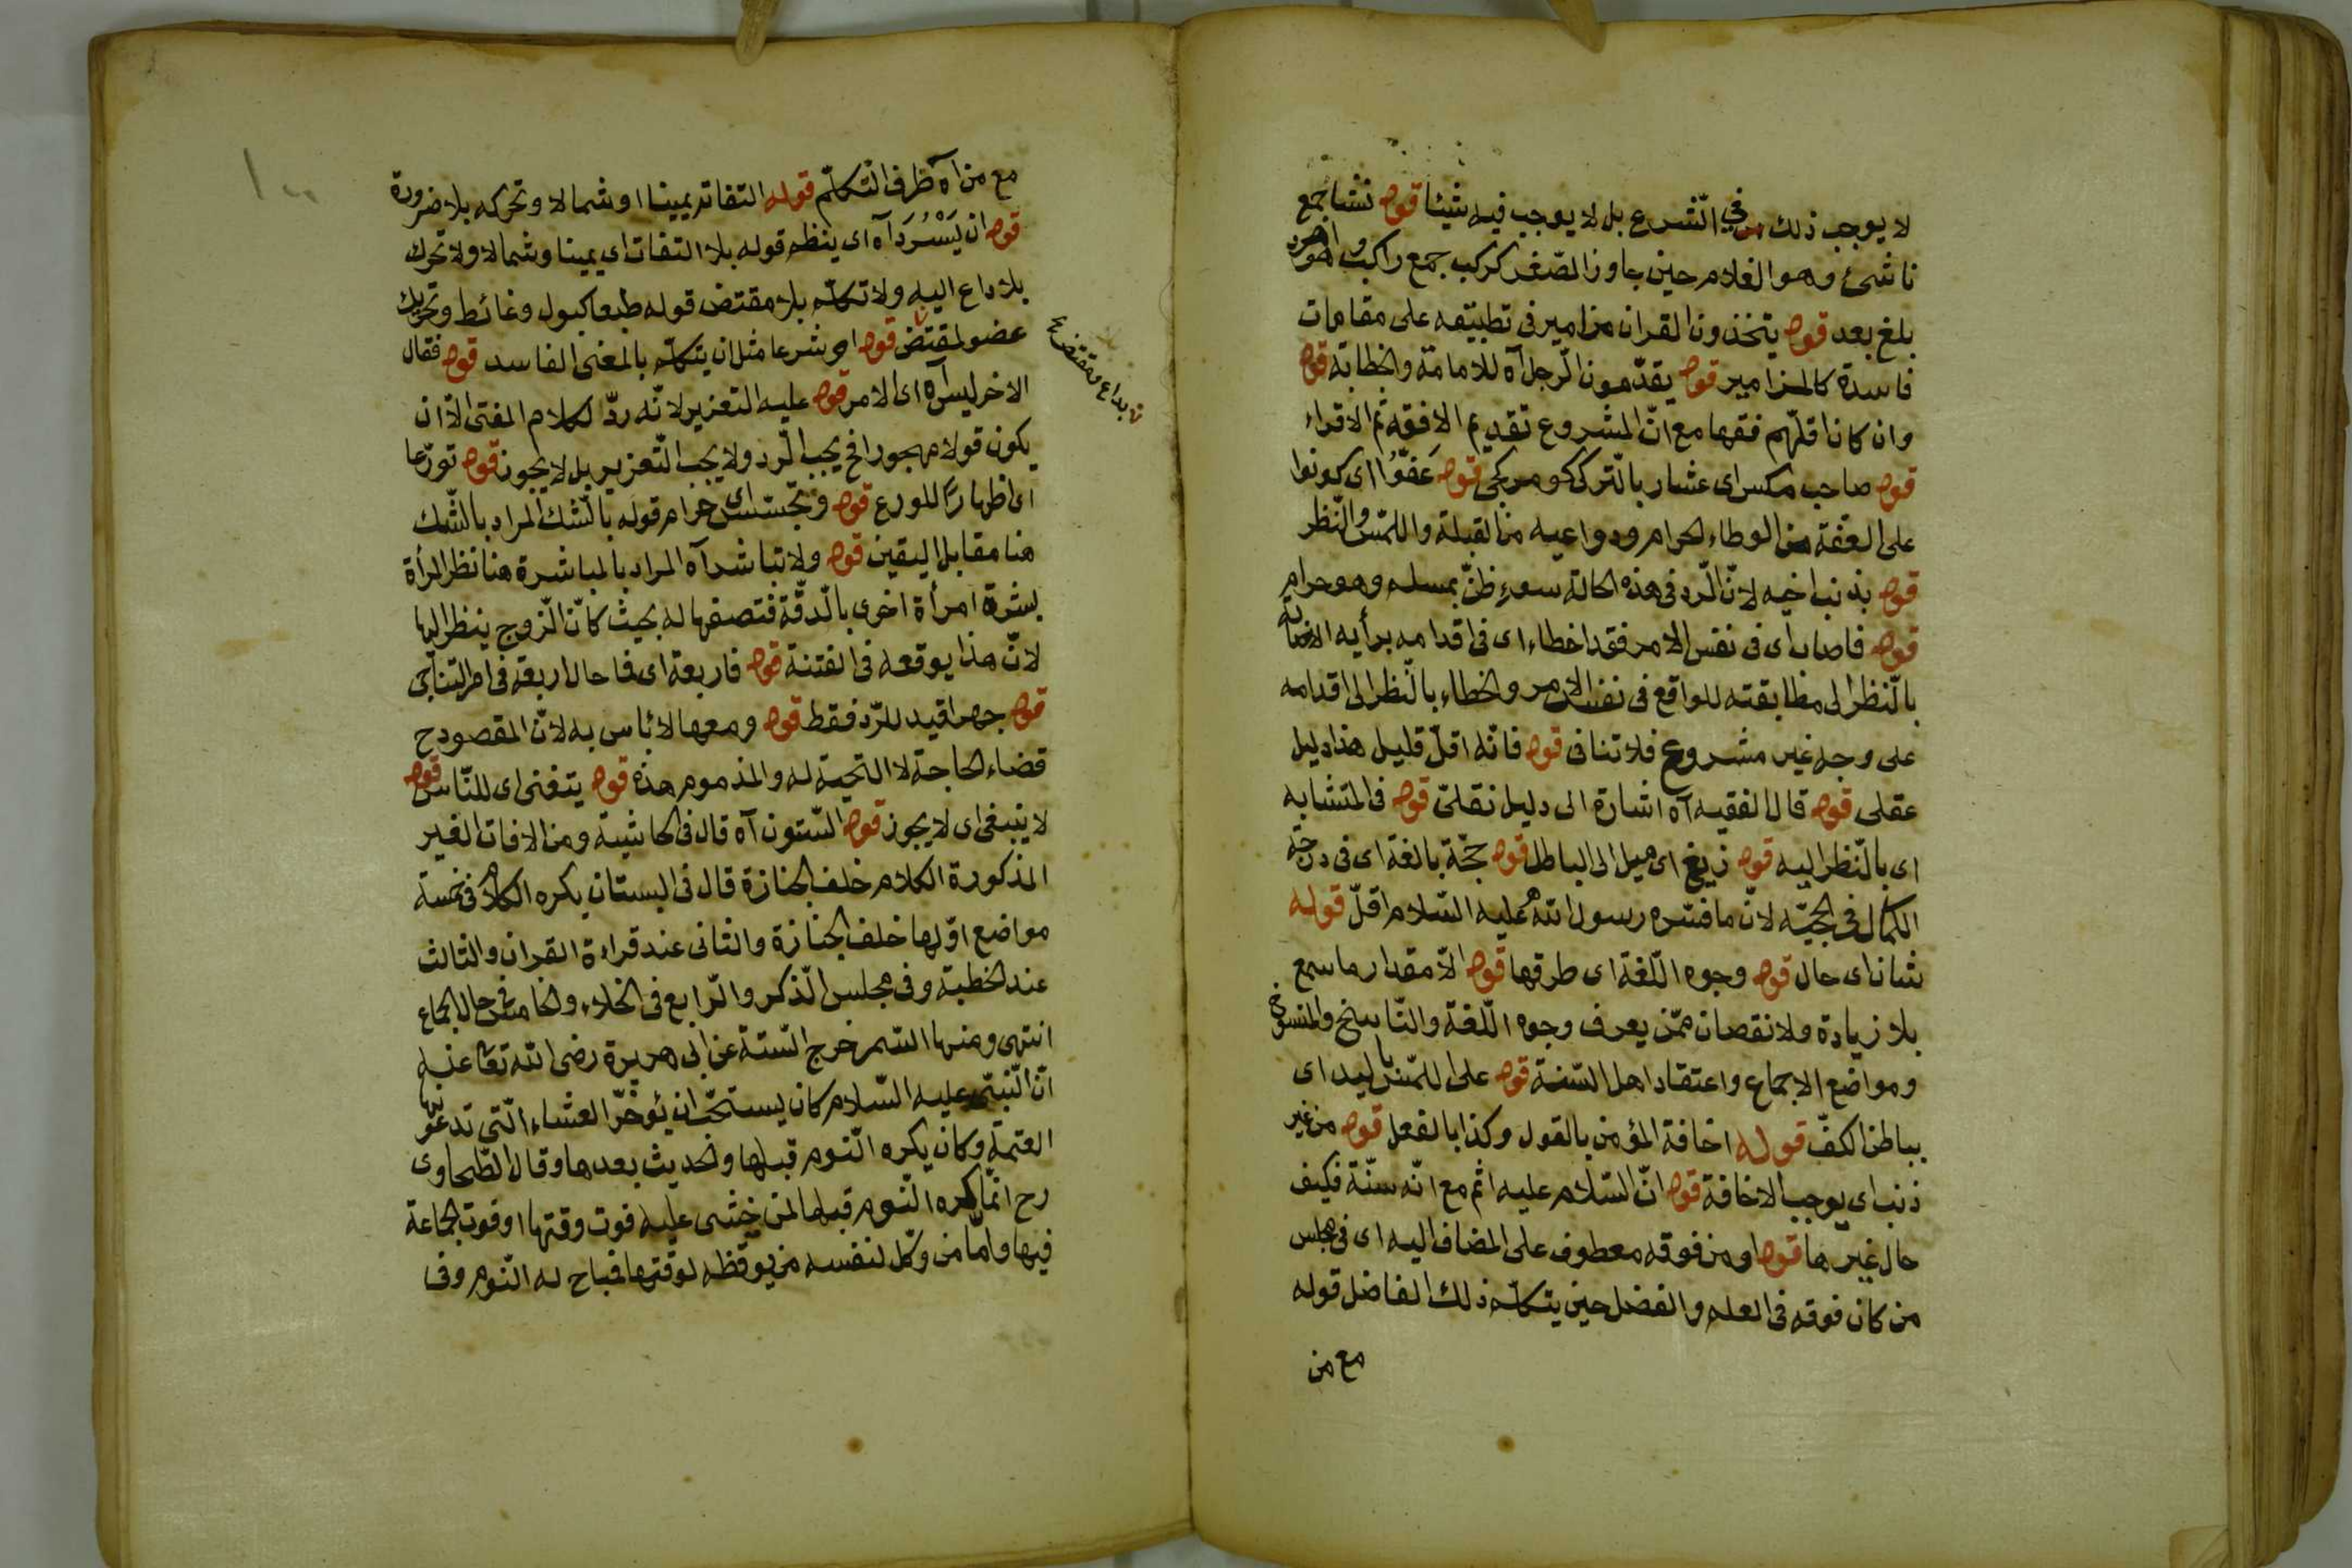 لا يوجب ذلك في الشرع بل لا يوجب فيه شيئا قوله نشأ جمع
ناشئ وهو الغلام حين جاوز الصغر كركب جمع راكب
بلغ بعد قوله يتخذون القران مزامير في تطبيقه على مقامات
فاسدة كالمزامير قوله يقدّمون الرجل آه للامامة والخطابة قوله
وان كان اقلّهم فقها مع انّ المشروع تقديم الافقه ثم الاقراء
قوله صاحب مكس اى عشار بالتركى كومركجى قوله عَفّوُا اى كونوا
على العفّة من الوطاء الحرام ودواعيه من القبلة واللمس والنّظر
قوله بذنب اخيه لانّ الرّد في هذه الحالة سوء ظنّ بمسلم وهو حرام
قوله فاصاب اى في نفس الامر فقد اخطاء اى في اقدامه برأيه الاصابة
بالنّظر الى مطابقته للواقع في نفس الامر والخطاء بالنّظر الى اقدامه
على وجه غير مشروع فلا تنافى قوله فانّه اقلّ قليل هذا دليل
عقلى قوله قال الفقيه آه اشارة الى دليل نقلىّ قوله في المتشابه
اى بالنّظر اليه قوله زيغ اى ميل الى الباطل قوله حجّة بالغة اى في درجة
الكمال في الحجيّه لانّ ما فسّره رسول الله عليه السّلام اقلّ قوله
شان اى حال قوله وجوه اللّغة اى طرقها قوله الاّ مقدار ما سمع
بلا زيادة ولا نقصان ممّن يعرف وجوه اللّغة والنّاسخ والمنسوخ
ومواضع الاجماع واعتقاد اهل السّنة قوله على
بباطن الكفّ قوله اخافة المؤمن بالقول وكذا بالفعل قوله من غير
ذنب اى يوجب الاخافة قوله انّ السّلام عليه اثم مع انّه سنّة فكيف
حال غيرها قوله او من فوقه معطوف على المضاف اليه اى في مجلس
من كان فوقه في العلم والفضل حين يتكلّم ذلك الفاضل قوله
مع من
مع من آه ظرف التكلّم قوله التفاته يمينا او شمالا وتحركه بلا ضرورة
قوله ان يَسْرُدَ آه اى ينظم قوله بلا التفات اى يمينا وشمالا ولا تحرك
بلا داع اليه ولا تكلّم بلا مقتض قوله طبعا كبول وغائط وتحريك
عضو لمقتض قوله او شرعا مثل ان يتكلّم بالمعنى الفاسد قوله فقال
بداع ومقتض صح
الاخر ليس آه اى الامر قوله عليه التعزير لانّه ردّ لكلام المفتى الاّ ان
يكون قولا مهجورا فح يجب الرّد ولا يجب التّعزير بل لا يجوز قوله تورّعا
اى اظهارًا للورع قوله وتجسّس اى حرام قوله بالشّك المراد بالشّك
هنا مقابل اليقين قوله ولا تباشر آه المراد بالمباشرة هنا نظر المرأة
بشرة امرأة اخرى بالدّقّة فتصفها له بحيث كانّ الزّوج ينظر اليها
لانّ هذا يوقعه في الفتنة قوله فاربعة اى فاحال اربعة في امر التناجى
قوله جهرا قيد للرّد فقط قوله ومعها لا بأس به لانّ المقصود ح
قضاء الحاجة لا التحيّة له والمذموم هذه قوله يتغنى اى للنّاس قوله
لا ينبغى اى لا يجوز قوله السّتون آه قال في الحاشية ومن الافات الغير
المذكورة الكلام خلف الجنازة قال في البستان يكره الكلام في خمسة
مواضع اوّلها خلف الجنازة والثانى عند قراءة القران والثالث
عند الخطبة وفى مجلس الذّكر والرّابع في الخلاء والخامس في حال الجماع
انتهى ومنها السّمر خرج السّتة عن ابى هريرة رضى الله تعا عنه
انّ النّبىّ عليه السّلام كان يستحبّ ان يؤخّر العشاء الّتى تدعونها
العتمة وكان يكره النّوم قبلها والحديث بعدها وقال الطّحاوى
رح انّما كره النّوم قبلها لمن خشى عليه فوت وقتها او فوت الجماعة
فيها وامّا من وكّل لنفسه من يوقظه لوقتها فباح له النّوم وفى